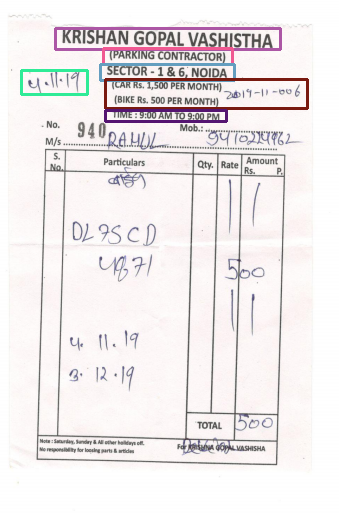 KRISHAN GOPAL VASHISTHA
(PARKING CONTRACTOR)
SECTOR - 1 & 6, NOIDA
4.11.19
(CAR Rs. 1,500 PER MONTH)
(BIKE Rs. 500 PER MONTH)
2019-11-006
TIME : 9:00 AM TO 9:00 PM
No. 940 Mob.: 9410224962
M/s RAHUL
S. No. Particulars Qty. Rate Amount Rs. P.
DL7SCD
4871 500
4. 11. 19
3. 12. 19
TOTAL 500
Note : Saturday, Sunday & All other holidays off.
No responsibility for loosing parts & articles
For KRISHNA GOPAL VASHISHA